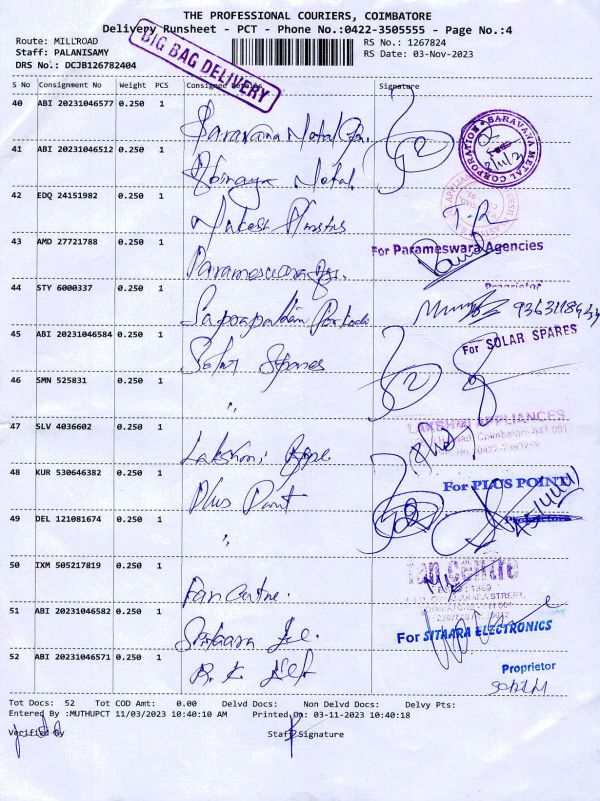 THE PROFESSIONAL COURIERS, COIMBATORE
Delivery Runsheet - PCT - Phone No.:0422-3505555 - Page No.:4
Route: MILL'ROAD RS No.: 1267824
Staff: PALANISAMY RS Date: 03-Nov-2023
DRS No.: DCJB126782404
BIG BAG DELIVERY
S No Consignment No Weight PCS Consignee Details Signature
40 ABI 20231046577 0.250 1 Saravana Metal
SARAVANA METAL CORPORATION
41 ABI 20231046512 0.250 1 Abinaya Metal
42 EDQ 24151982 0.250 1
43 AMD 27721788 0.250 1 Parameswara
For Parameswara Agencies
Proprietor
44 STY 6000337 0.250 1
45 ABI 20231046584 0.250 1 Solar Spares
For SOLAR SPARES
46 SMN 525831 0.250 1 "
47 SLV 4036602 0.250 1 Lakshmi
LAKSHMI APPLIANCES
48 KUR 530646382 0.250 1 Plus Point
For PLUS POINT
49 DEL 121081674 0.250 1 "
50 IXM 505217819 0.250 1 Fan Centre.
fan centre
51 ABI 20231046582 0.250 1 Sitaara Ele.
For SITAARA ELECTRONICS
Proprietor
52 ABI 20231046571 0.250 1 R. K
Tot Docs: 52 Tot COD Amt: 0.00 Delvd Docs: Non Delvd Docs: Delvy Pts:
Entered By :MUTHUPCT 11/03/2023 10:40:10 AM Printed On: 03-11-2023 10:40:18
Verified By Staff Signature